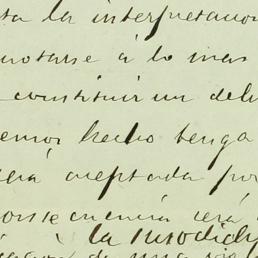 ta la interpretacion
notarse á lo mas
constituir un deli
emos hecho tenga
erá aceptada por
consecuencia será
á la Jurodicc
de una via